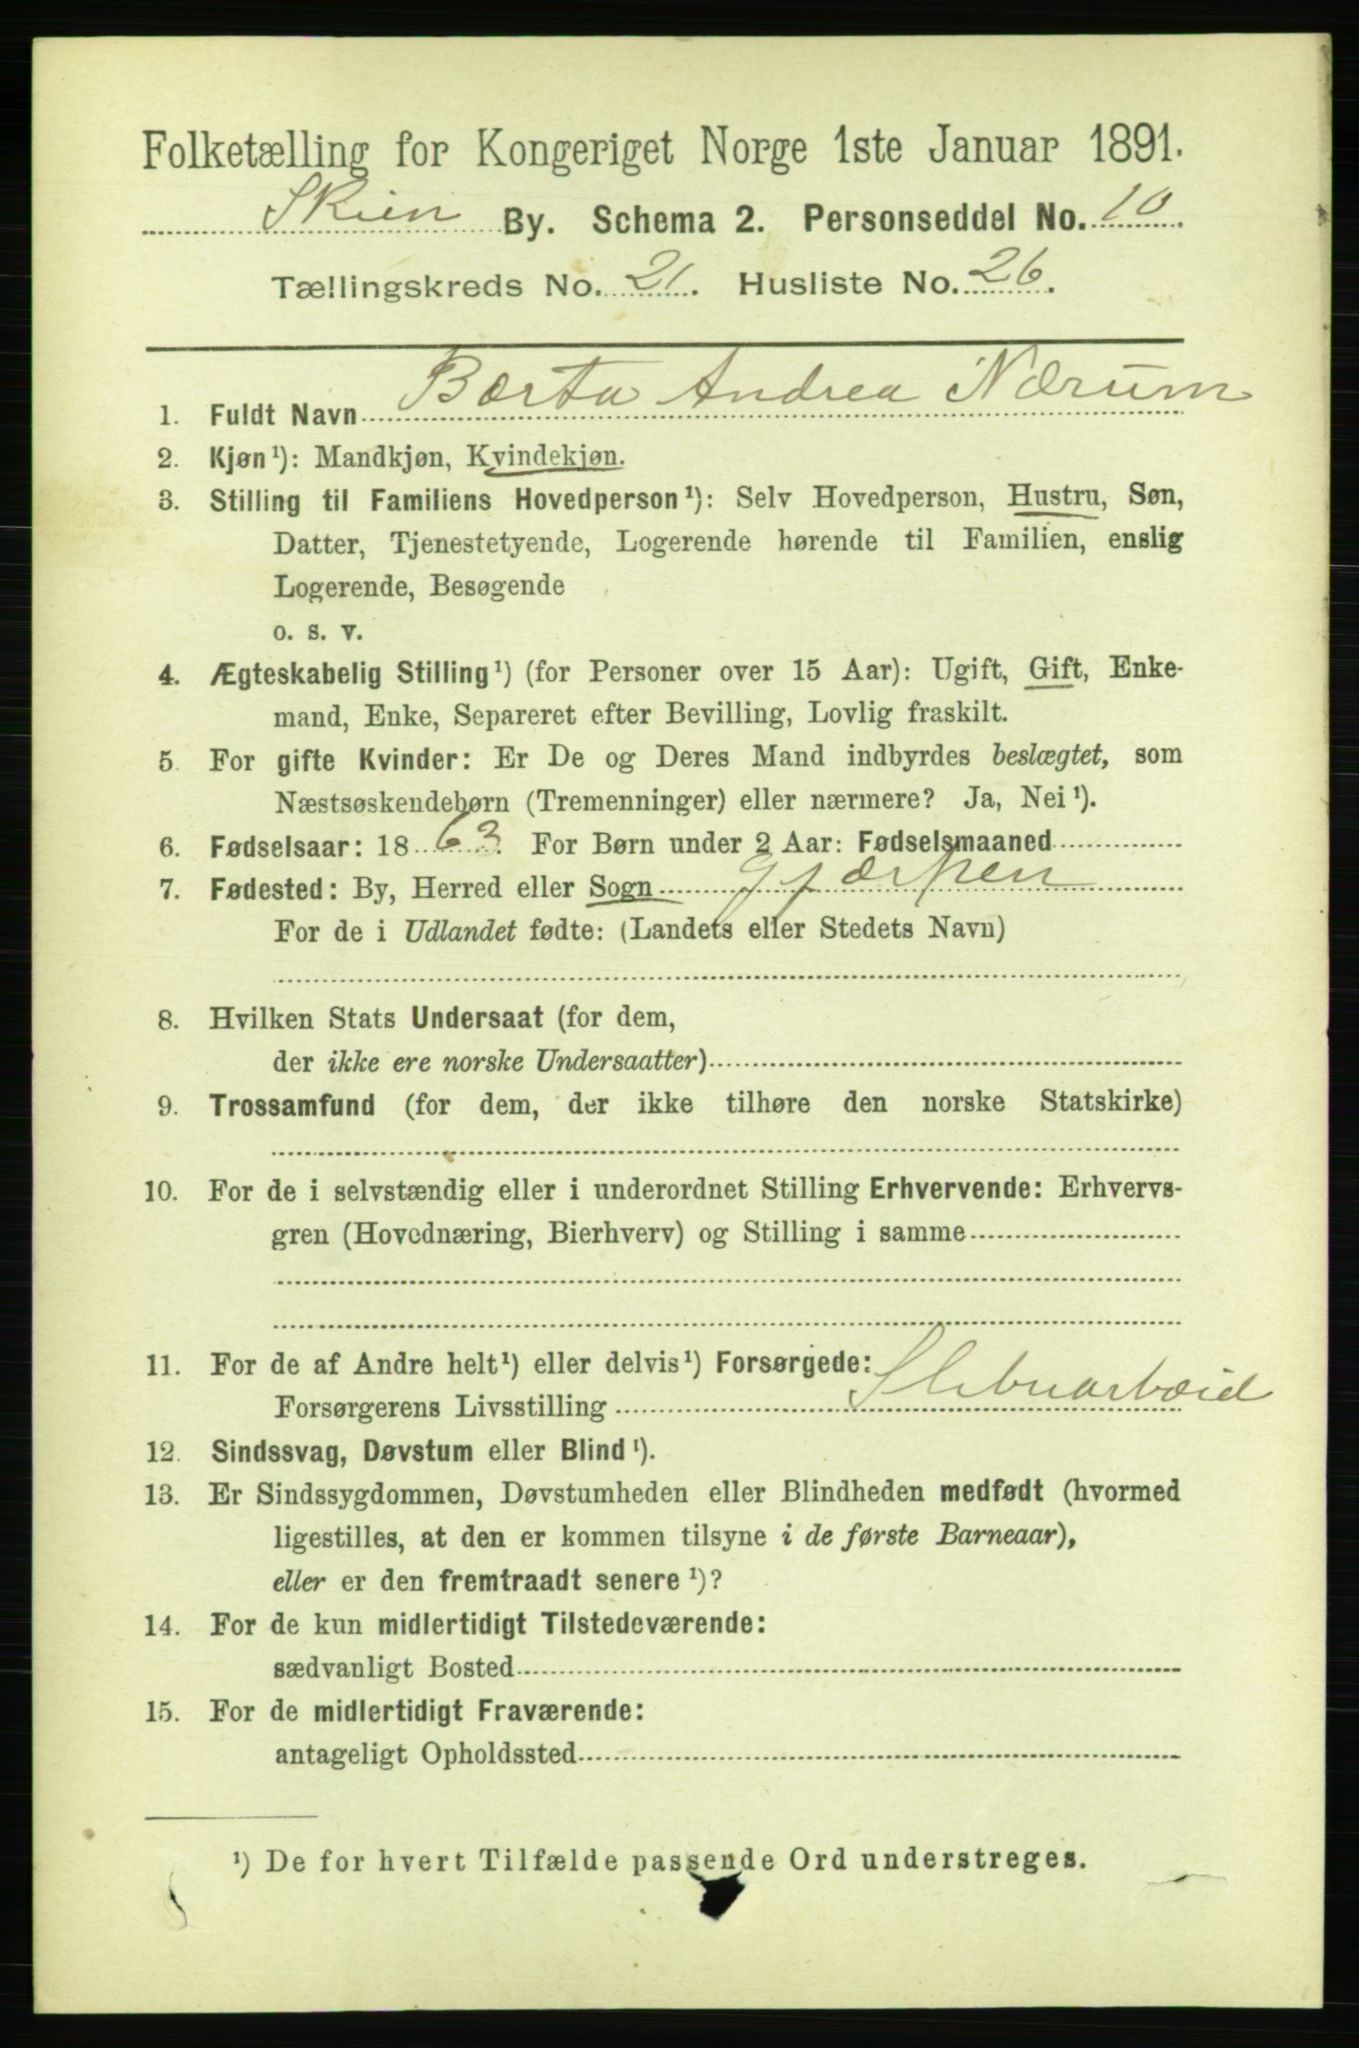 Folketælling for Kongeriget Norge 1ste Januar 1891.
Skien By. Schema 2. Personseddel No. 10
Tællingskreds No. 21. Husliste No. 26.
1. Fuldt Navn Bærta Andrea Nærum
2. Kjøn¹): Mandkjøn, Kvindekjøn.
3. Stilling til Familiens Hovedperson¹): Selv Hovedperson, Hustru, Søn,
Datter, Tjenestetyende, Logerende hørende til Familien, enslig
Logerende, Besøgende
o. s. v.
4. Ægteskabelig Stilling¹) (for Personer over 15 Aar): Ugift, Gift, Enke-
mand, Enke, Separeret efter Bevilling, Lovlig fraskilt.
5. For gifte Kvinder: Er De og Deres Mand indbyrdes beslægtet, som
Næstsøskendebørn (Tremenninger) eller nærmere? Ja, Nei¹).
6. Fødselsaar: 1863. For Børn under 2 Aar: Fødselsmaaned
7. Fødested: By, Herred eller Sogn Gjærpen
For de i Udlandet fødte: (Landets eller Stedets Navn)
8. Hvilken Stats Undersaat (for dem,
der ikke ere norske Undersaatter)
9. Trossamfund (for dem, der ikke tilhøre den norske Statskirke)
10. For de i selvstændig eller i underordnet Stilling Erhvervende: Erhvervs-
gren (Hovednæring, Bierhverv) og Stilling i samme
11. For de af Andre helt¹) eller delvis¹) Forsørgede:
Forsørgerens Livsstilling
12. Sindssvag, Døvstum eller Blind¹).
13. Er Sindssygdommen, Døvstumheden eller Blindheden medfødt (hvormed
ligestilles, at den er kommen tilsyne i de første Barneaar),
eller er den fremtraadt senere¹)?
14. For de kun midlertidigt Tilstedeværende:
sædvanligt Bosted
15. For de midlertidigt Fraværende:
antageligt Opholdssted
¹) De for hvert Tilfælde passende Ord understreges.